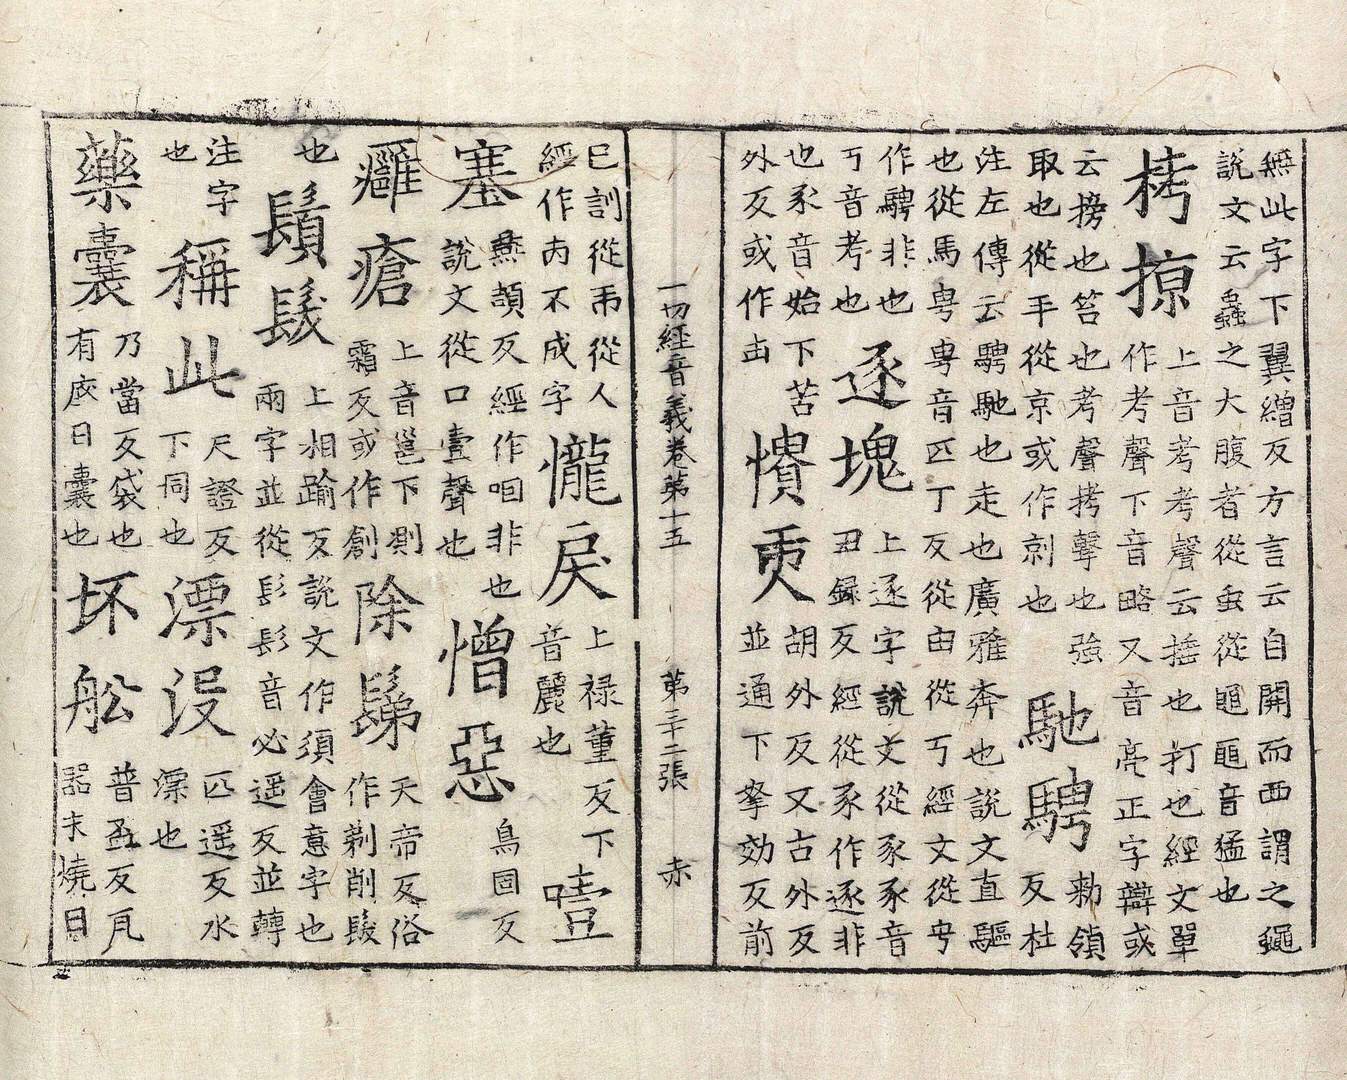 無此字下翼繒反方言云自關而西謂之蠅
說文云蟲之大腹者從虫從黽黽音猛也
栲掠 上音考考聲云捶也打也經文單
作考聲下音略又音亮正字辯或
云搒也笞也考聲拷擊也強
取也從手從京或作剠也 馳騁 勅領
反杜
注左傳云騁馳也走也廣雅奔也說文直驅
也從馬甹甹音匹丁反從由從丂經文從甹
作騁非也
丂音考也 逐塊 上逐字說文從豕豕音
丑録反經從豕作逐非
也豕音始下苦
外反或作凷 憒 胡外反又古外反
並通下拏効反前
一切經音義卷第十五 第三十二張 赤
已訓從市從人
經作丙不成字 㦕戾 上禄董反下
音麗也 噎
塞 燕頡反經作咽非也
說文從口壹聲也 憎惡 烏固反
癰瘡 上音邕下測
霜反或作創 除鬀 天帝反俗
作剃削髮
也 鬚髮 上相踰反說文作須會意字也
兩字並從髟髟音必遥反並轉
注字
也 稱此 尺證反
下同也 漂没 匹遥反水
漂也
藥囊 乃當反袋也
有底曰囊也 坏舩 普盃反瓦
器未燒曰